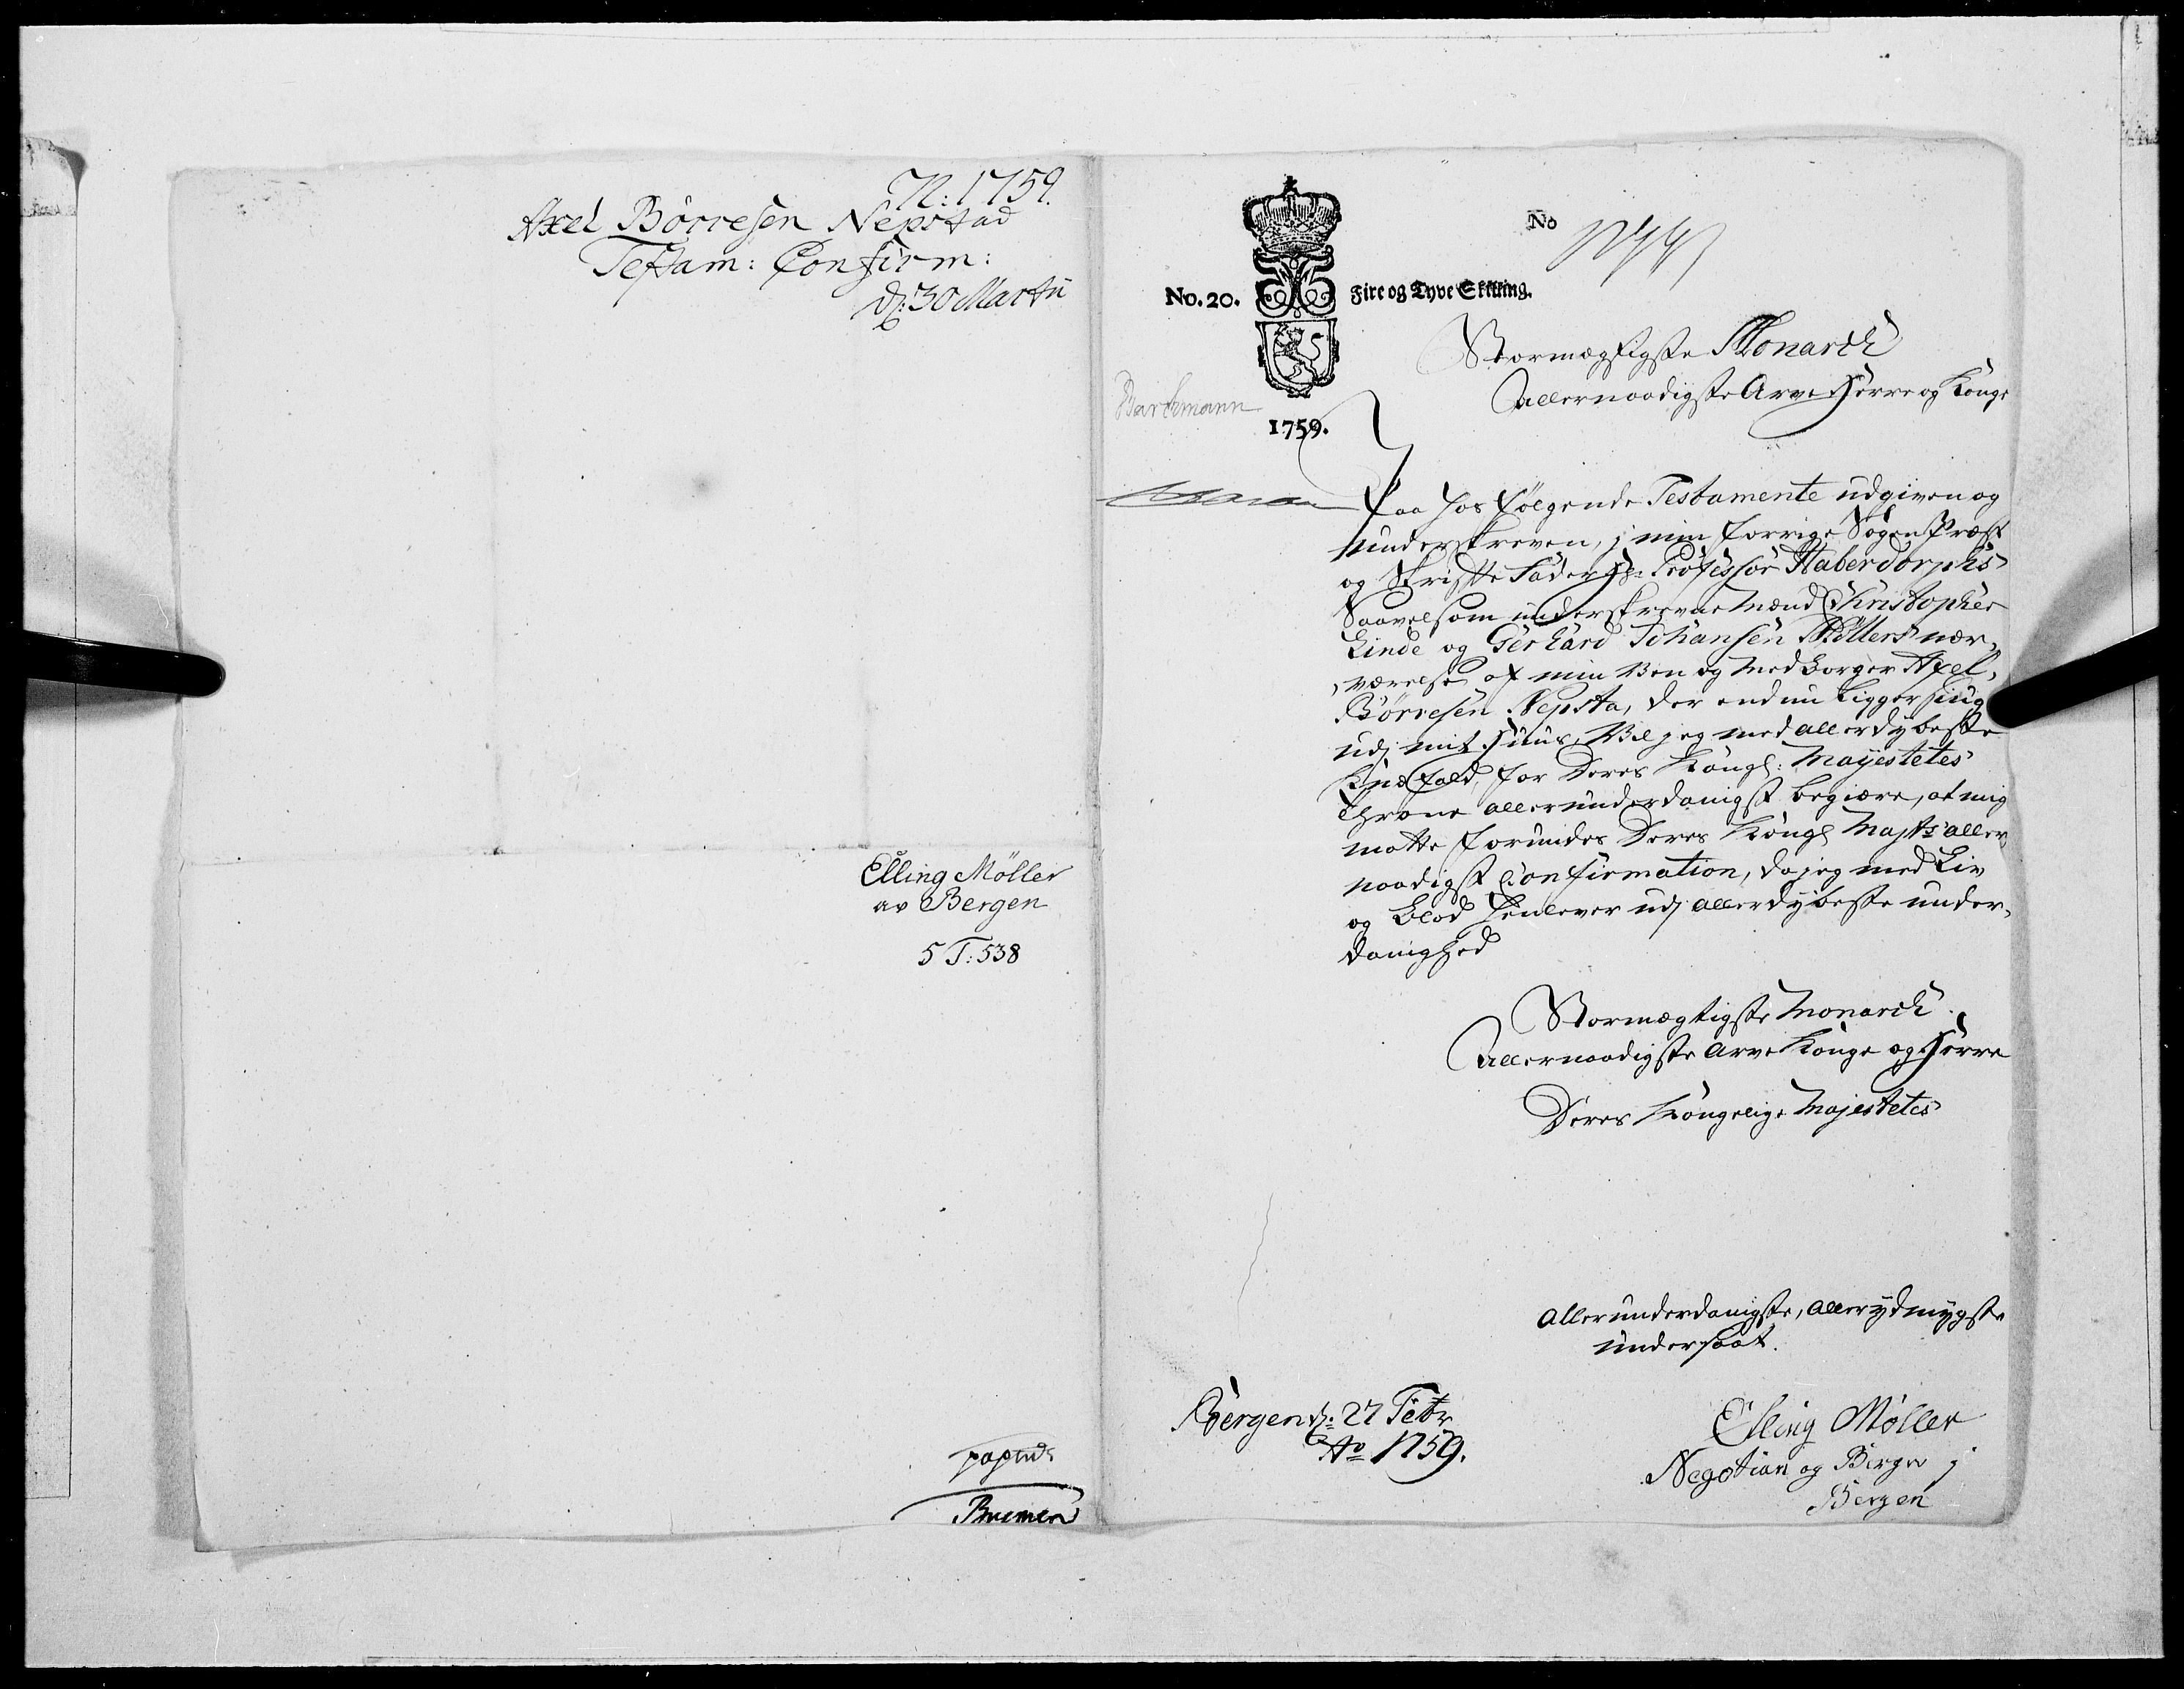 N: 1759.
Axel Börresen Nepstad
Testam: Confirm:
d: 30 Martii
Elling Möller
av Bergen
5 T: 538
No
No. 20. Fire og Tyve Skilling.
Stormægtigste Monarch
Allernaadigste Arve Herre og Konge
Barckmann
1759.
Paa hos følgende Testamente udgiven og
underskreven, j min forrige Sogne Præst
og Skrifte Fader Hr: Professor Haberdorphs
Saavelsom underskrevne Mænd Christopher
Linde og Gerhard Johansen Möllers nær,
,værelse af min Ven og Medborger Axel,
Börresen Nepsta, der endnu ligger siug
udj mit Huus, Vil jeg med allerdybeste
Knæfald, for Deres Kongl: Mayestetes
Throne allerunderdanigst begiære, at mig
motte forundes Deres Kongl Majts aller,
naadigst Confirmation, da jeg med Liv
og Blod henlever udj allerdybeste under,
danighed
Stormægtigste Monarch.
Allernaadigste Arve Konge og Herre
Deres Kongelige Majestetes
Allerunderdanigste, allerydmygste
undersaat.
Bergen d: 27 Febr
Ao 1759.
Elling Möller
Negotian og Borger j
Bergen